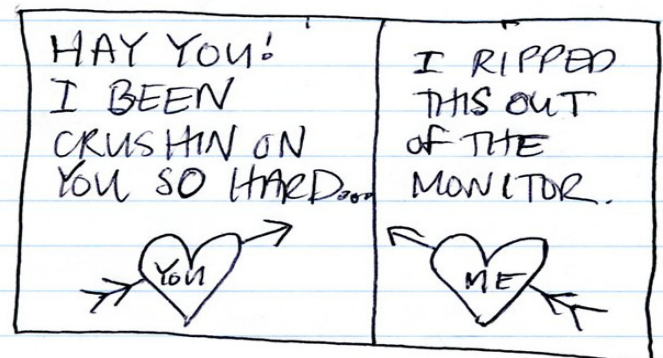 HAY YOU!
I BEEN
CRUSHIN ON
YOU SO HARD...
YOU
I RIPPED
THIS OUT
OF THE
MONITOR.
ME